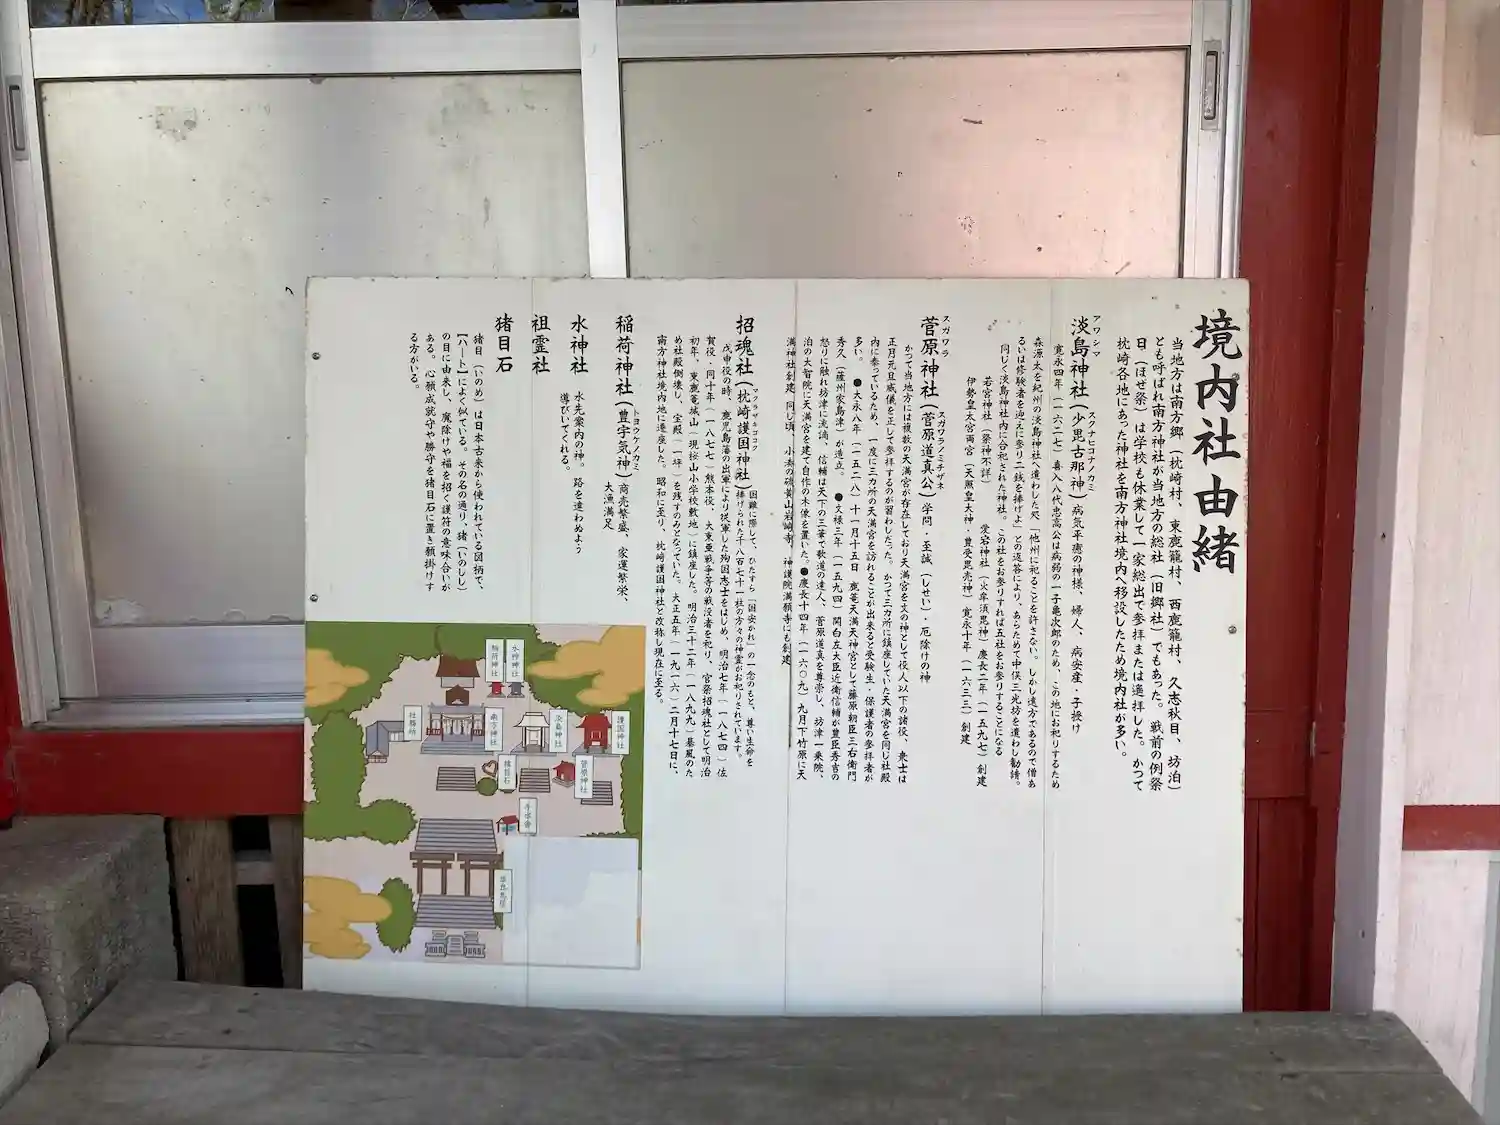 境内社由緒
当地方は南方郷（枕崎村、東鹿籠村、西鹿籠村、久志秋目、坊泊）
とも呼ばれ南方神社が当地方の総社（旧郷社）でもあった。戦前の例祭
日（ほぜ祭）は学校も休業して一家総出で参拝または遥拝した。かつて
枕崎各地にあった神社を南方神社境内へ移設したため境内社が多い。
アワシマ
スクナヒコナノカミ
淡島神社（少毘古那神）病気平癒の神様、婦人、病安産・子授け
寛永四年（一六二七）喜入八代忠高公は病弱の一子亀次郎のため、この地にお祀りするため
森源太を紀州の淡島神社へ遣わした処「他州に祀ることを許さない。しかし遠方であるので僧あ
るいは修験者を迎えに参り二銭を捧げよ」との返答により、あらためて中俣三光坊を遣わし勧請。
同じく淡島神社内に合祀された神社。この社をお参りすれば五社をお参りすることになる
若宮神社（祭神不詳）　愛宕神社（火牟須毘神）慶長二年（一五九七）創建
伊勢皇太宮両宮（天照皇大神・豊受毘売神）寛永十年（一六三三）創建
スガワラ
スガワラノミチザネ
菅原神社（菅原道真公）学問・至誠（しせい）・厄除けの神
かつて当地方には複数の天満宮が存在しており天満宮を文の神として役人以下の諸役、衆士は
正月元旦威儀を正して参拝するのが習わしだった。かつて三カ所に鎮座していた天満宮を同じ社殿
内に奉っているため、一度に三カ所の天満宮を訪れることが出来ると受験生・保護者の参拝者が
多い。●大永八年（一五二八）十一月十五日 鹿篭天満天神宮として藤原朝臣三右衛門
秀久（薩州家島津）が造立。●文禄三年（一五九四）関白左大臣近衛信輔が豊臣秀吉の
怒りに触れ坊津に流謫、信輔は天下の三筆で歌道の達人、菅原道真を尊崇し、坊津一乗院、
泊の大智院に天満宮を建て自作の木像を置いた。●慶長十四年（一六〇九）九月下竹原に天
満神社創建 同じ頃、小湊の硫黄山岩崎寺、神護院満願寺にも創建
マクラザキゴコク
招魂社（枕崎護国神社）国難に際して、ひたすら「国安かれ」の一念のもと、尊い生命を
捧げられた千八百七十一柱の方々の神霊がお祀りされています。
戊申役の時、鹿児島藩の出軍により従軍した殉国志士をはじめ、明治七年（一八七四）佐
賀役・同十年（一八七七）熊本役、大東亜戦争等の戦没者を祀り、官祭招魂社として明治
初年、東鹿篭城山（現桜山小学校敷地）に鎮座した。明治三十二年（一八九九）暴風のた
め社殿倒壊し、宝殿（一坪）を残すのみとなっていた。大正五年（一九一六）二月十七日に、
南方神社境内地に遷座した。昭和に至り、枕崎護国神社と改称し現在に至る。
トヨウケノカミ
稲荷神社（豊宇気神）商売繁盛、家運繁栄、
大漁満足
水神社　水先案内の神。路を違わぬよう
導びいてくれる。
祖霊社
猪目石
猪目（いのめ）は日本古来から使われている図柄で、
【ハート】によく似ている。その名の通り、猪（いのしし）
の目に由来し、魔除けや福を招く護符の意味合いが
ある。心願成就守や勝守を猪目石に置き願掛けす
る方がいる。
水神神社
稲荷神社
社務所
南方神社
淡島神社
護国神社
猪目石
菅原神社
手水舎